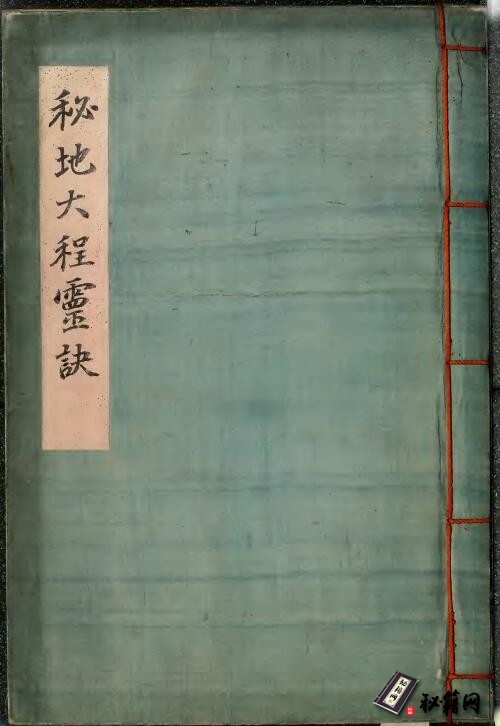 秘地大程靈訣
秘籍网